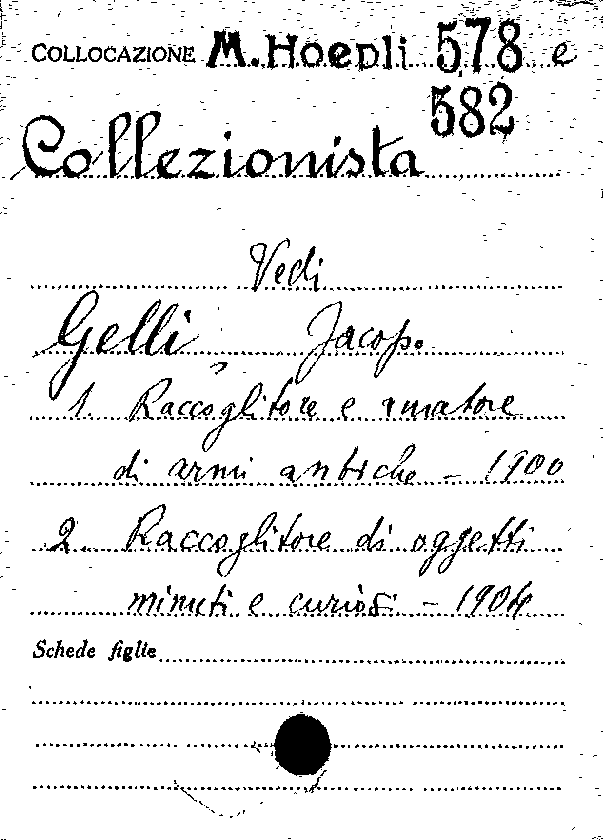 COLLOCAZIONE M. Hoepli 578 e
582
Collezionista
Vedi
Gelli, Jacop.
1. Raccoglitore e amatore
di armi antiche - 1900
2. Raccoglitore di oggetti
minuti e curiosi - 1904
Schede figlie